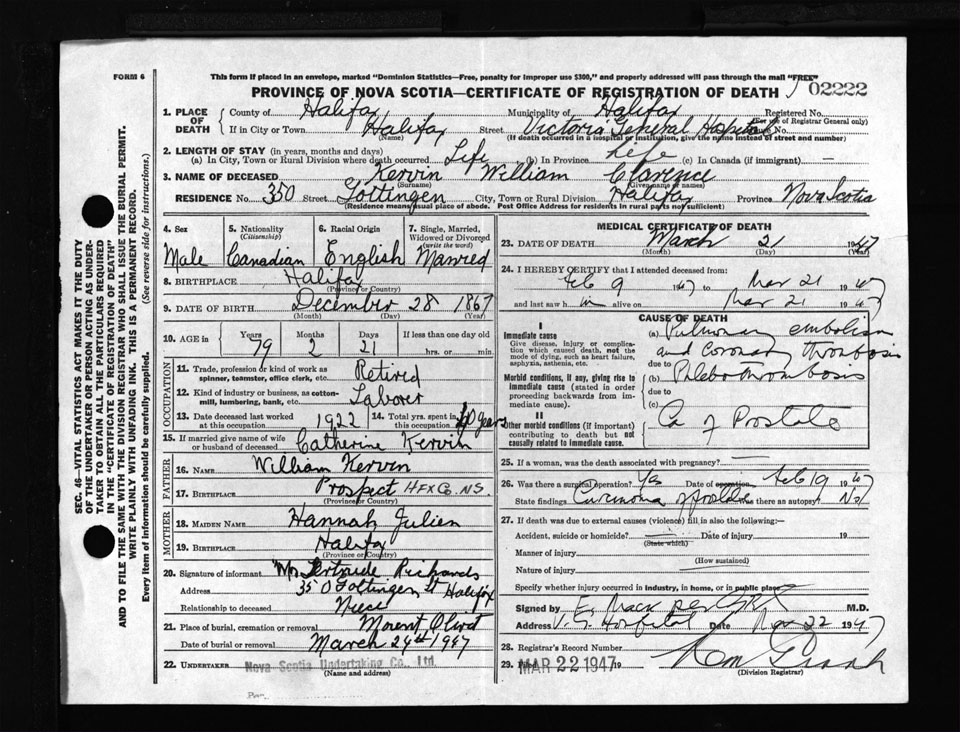 FORM 6
This form if placed in an envelope, marked "Dominion Statistics—Free, penalty for improper use $300," and properly addressed will pass through the mail "FREE"
PROVINCE OF NOVA SCOTIA—CERTIFICATE OF REGISTRATION OF DEATH
02222
SEC. 46—VITAL STATISTICS ACT MAKES IT THE DUTY
OF THE UNDERTAKER OR PERSON ACTING AS UNDER-
TAKER TO OBTAIN ALL THE PARTICULARS REQUIRED
IN THE "CERTIFICATE OF REGISTRATION OF DEATH"
AND TO FILE THE SAME WITH THE DIVISION REGISTRAR WHO SHALL ISSUE THE BURIAL PERMIT.
WRITE PLAINLY WITH UNFADING INK. THIS IS A PERMANENT RECORD.
Every item of Information should be carefully supplied. (See reverse side for instructions.)
1. PLACE OF DEATH
County of Halifax Municipality of Halifax Registered No.
(For use of Registrar General only)
If in City or Town Halifax Street Victoria General Hospital
(Name) (If death occurred in a hospital or institution, give the name instead of street and number)
2. LENGTH OF STAY (in years, months and days)
(a) In City, Town or Rural Division where death occurred Life (b) In Province Life (c) In Canada (if immigrant) —
3. NAME OF DECEASED Kervin William Clarence
(Surname) (Given name or names)
RESIDENCE No. 350 Street Gottingen City, Town or Rural Division Halifax Province Nova Scotia
(Residence means usual place of abode. Post Office Address for residents in rural parts not sufficient)
4. Sex 5. Nationality (Citizenship) 6. Racial Origin 7. Single, Married, Widowed or Divorced (write the word)
Male Canadian English Married
8. BIRTHPLACE Halifax
(Province or Country)
9. DATE OF BIRTH December 28 1867
(Month) (Day) (Year)
10. AGE in Years Months Days If less than one day old
79 2 21 hrs. or min.
OCCUPATION
11. Trade, profession or kind of work as spinner, teamster, office clerk, etc. Retired
12. Kind of industry or business, as cotton-mill, lumbering, bank, etc. Laborer
13. Date deceased last worked at this occupation 1922 14. Total yrs. spent in this occupation 40 years
15. If married give name of wife or husband of deceased Catherine Kervin
FATHER
16. NAME William Kervin
17. BIRTHPLACE Prospect HFX Co. N.S.
(Province or Country)
MOTHER
18. MAIDEN NAME Hannah Julien
19. BIRTHPLACE Halifax
(Province or Country)
20. Signature of informant Mrs Gertrude Richards
Address 350 Gottingen St Halifax
Relationship to deceased Niece
21. Place of burial, cremation or removal Mount Olivet
Date of burial or removal March 24th 1947
22. UNDERTAKER Nova Scotia Undertaking Co., Ltd.
(Name and address)
MEDICAL CERTIFICATE OF DEATH
23. DATE OF DEATH March 21 1947
(Month) (Day) (Year)
24. I HEREBY CERTIFY that I attended deceased from:
Feb 9 1947 to Mar 21 1947
and last saw him alive on Mar 21 1947
CAUSE OF DEATH
I
Immediate cause
Give disease, injury or complication which caused death, not the mode of dying, such as heart failure, asphyxia, asthenia, etc.
(a) Pulmonary embolism
and Coronary thrombosis
due to
Morbid conditions, if any, giving rise to immediate cause (stated in order proceeding backwards from immediate cause).
(b) Phlebothrombosis
due to
(c)
II
Other morbid conditions (if important) contributing to death but not causally related to immediate cause.
Ca of Prostate
25. If a woman, was the death associated with pregnancy? —
26. Was there a surgical operation? Yes Date of operation Feb 19 1947
State findings Carcinoma of prostate was there an autopsy? No
27. If death was due to external causes (violence) fill in also the following:—
Accident, suicide or homicide? Date of injury 19
(State which)
Manner of injury
(How sustained)
Nature of injury
Specify whether injury occurred in industry, in home, or in public place
Signed by E. Mack per M.D.
Address V. G. Hospital Date Mar 22 1947
28. Registrar's Record Number
29. MAR 22 1947 19
(Division Registrar)